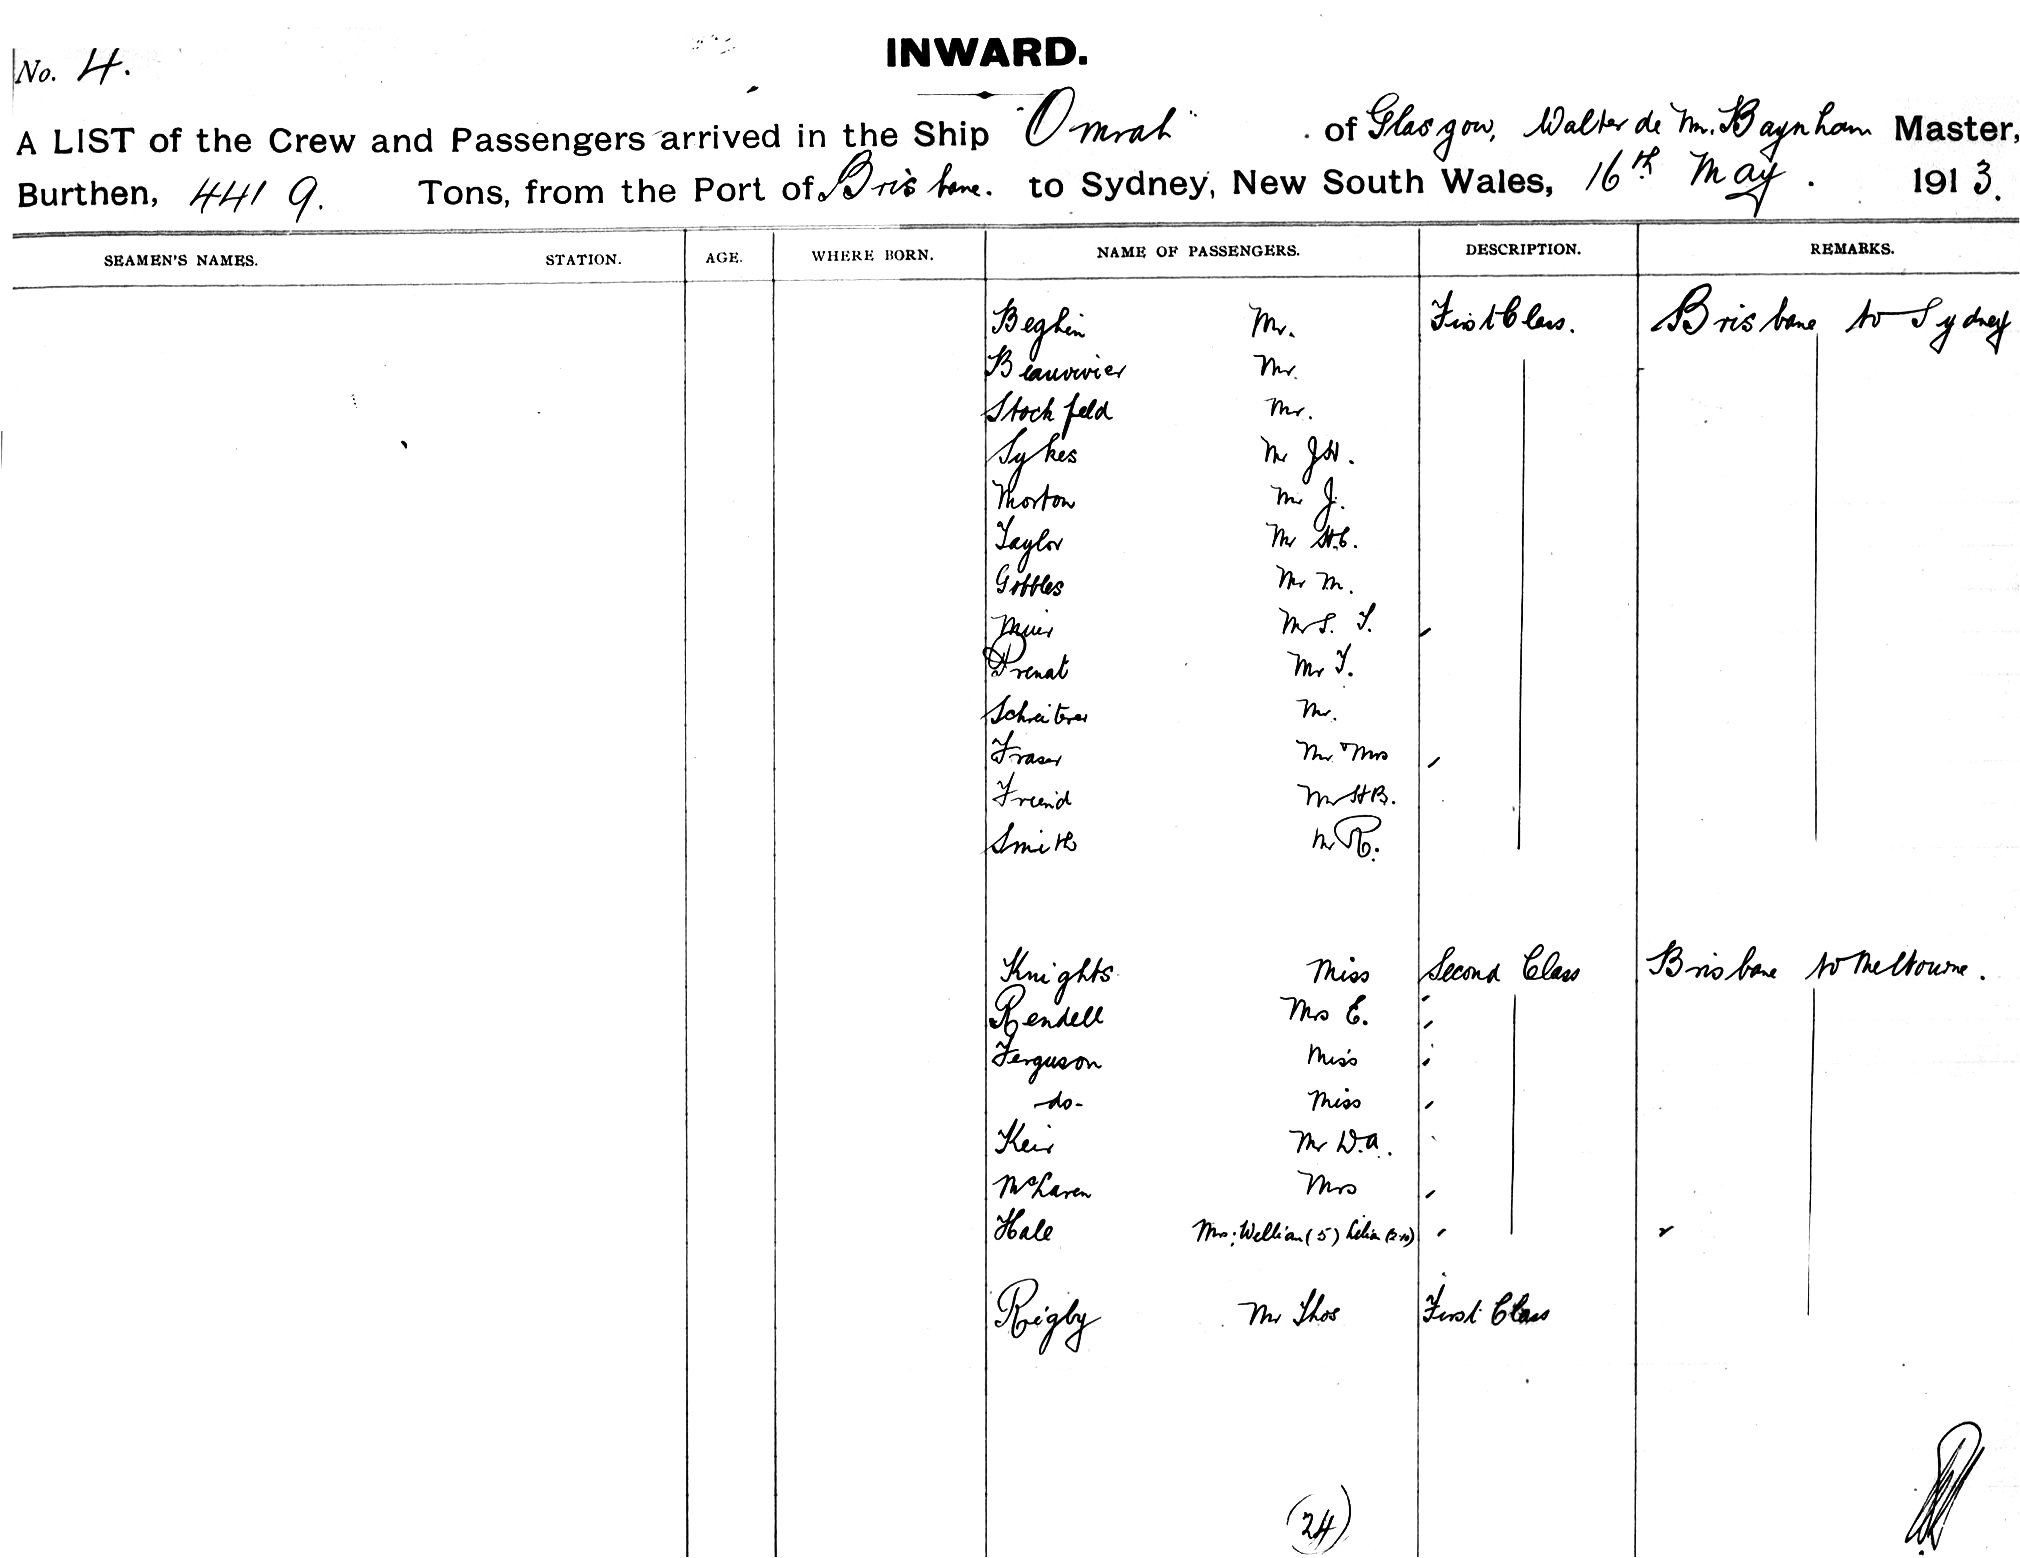 No. 4.
INWARD.
A LIST of the Crew and Passengers arrived in the Ship "Omrah" of Glasgow, Walter de M. Baynham Master,
Burthen, 4419. Tons, from the Port of Brisbane. to Sydney, New South Wales, 16th May. 1913.
SEAMEN'S NAMES. STATION. AGE. WHERE BORN. NAME OF PASSENGERS. DESCRIPTION. REMARKS.
Beghin Mr. First Class. Brisbane to Sydney
Beauvivier Mr.
Stockfeld Mr.
Sykes Mr J H.
Morton Mr J.
Taylor Mr H.C.
Gobbles Mr M.
Muir Mrs. T.
Prenat Mr T.
Schreiterer Mr.
Fraser Mr & Mrs
Freund Mr H B.
Smith Mr R.
Knights Miss Second Class Brisbane to Melbourne.
Rendell Mrs E.
Ferguson Miss
-do- Miss
Keir Mr D.A.
McLaren Mrs
Hale Mrs; William (5) Lilian
Rigby Mr Thos First Class
(24)